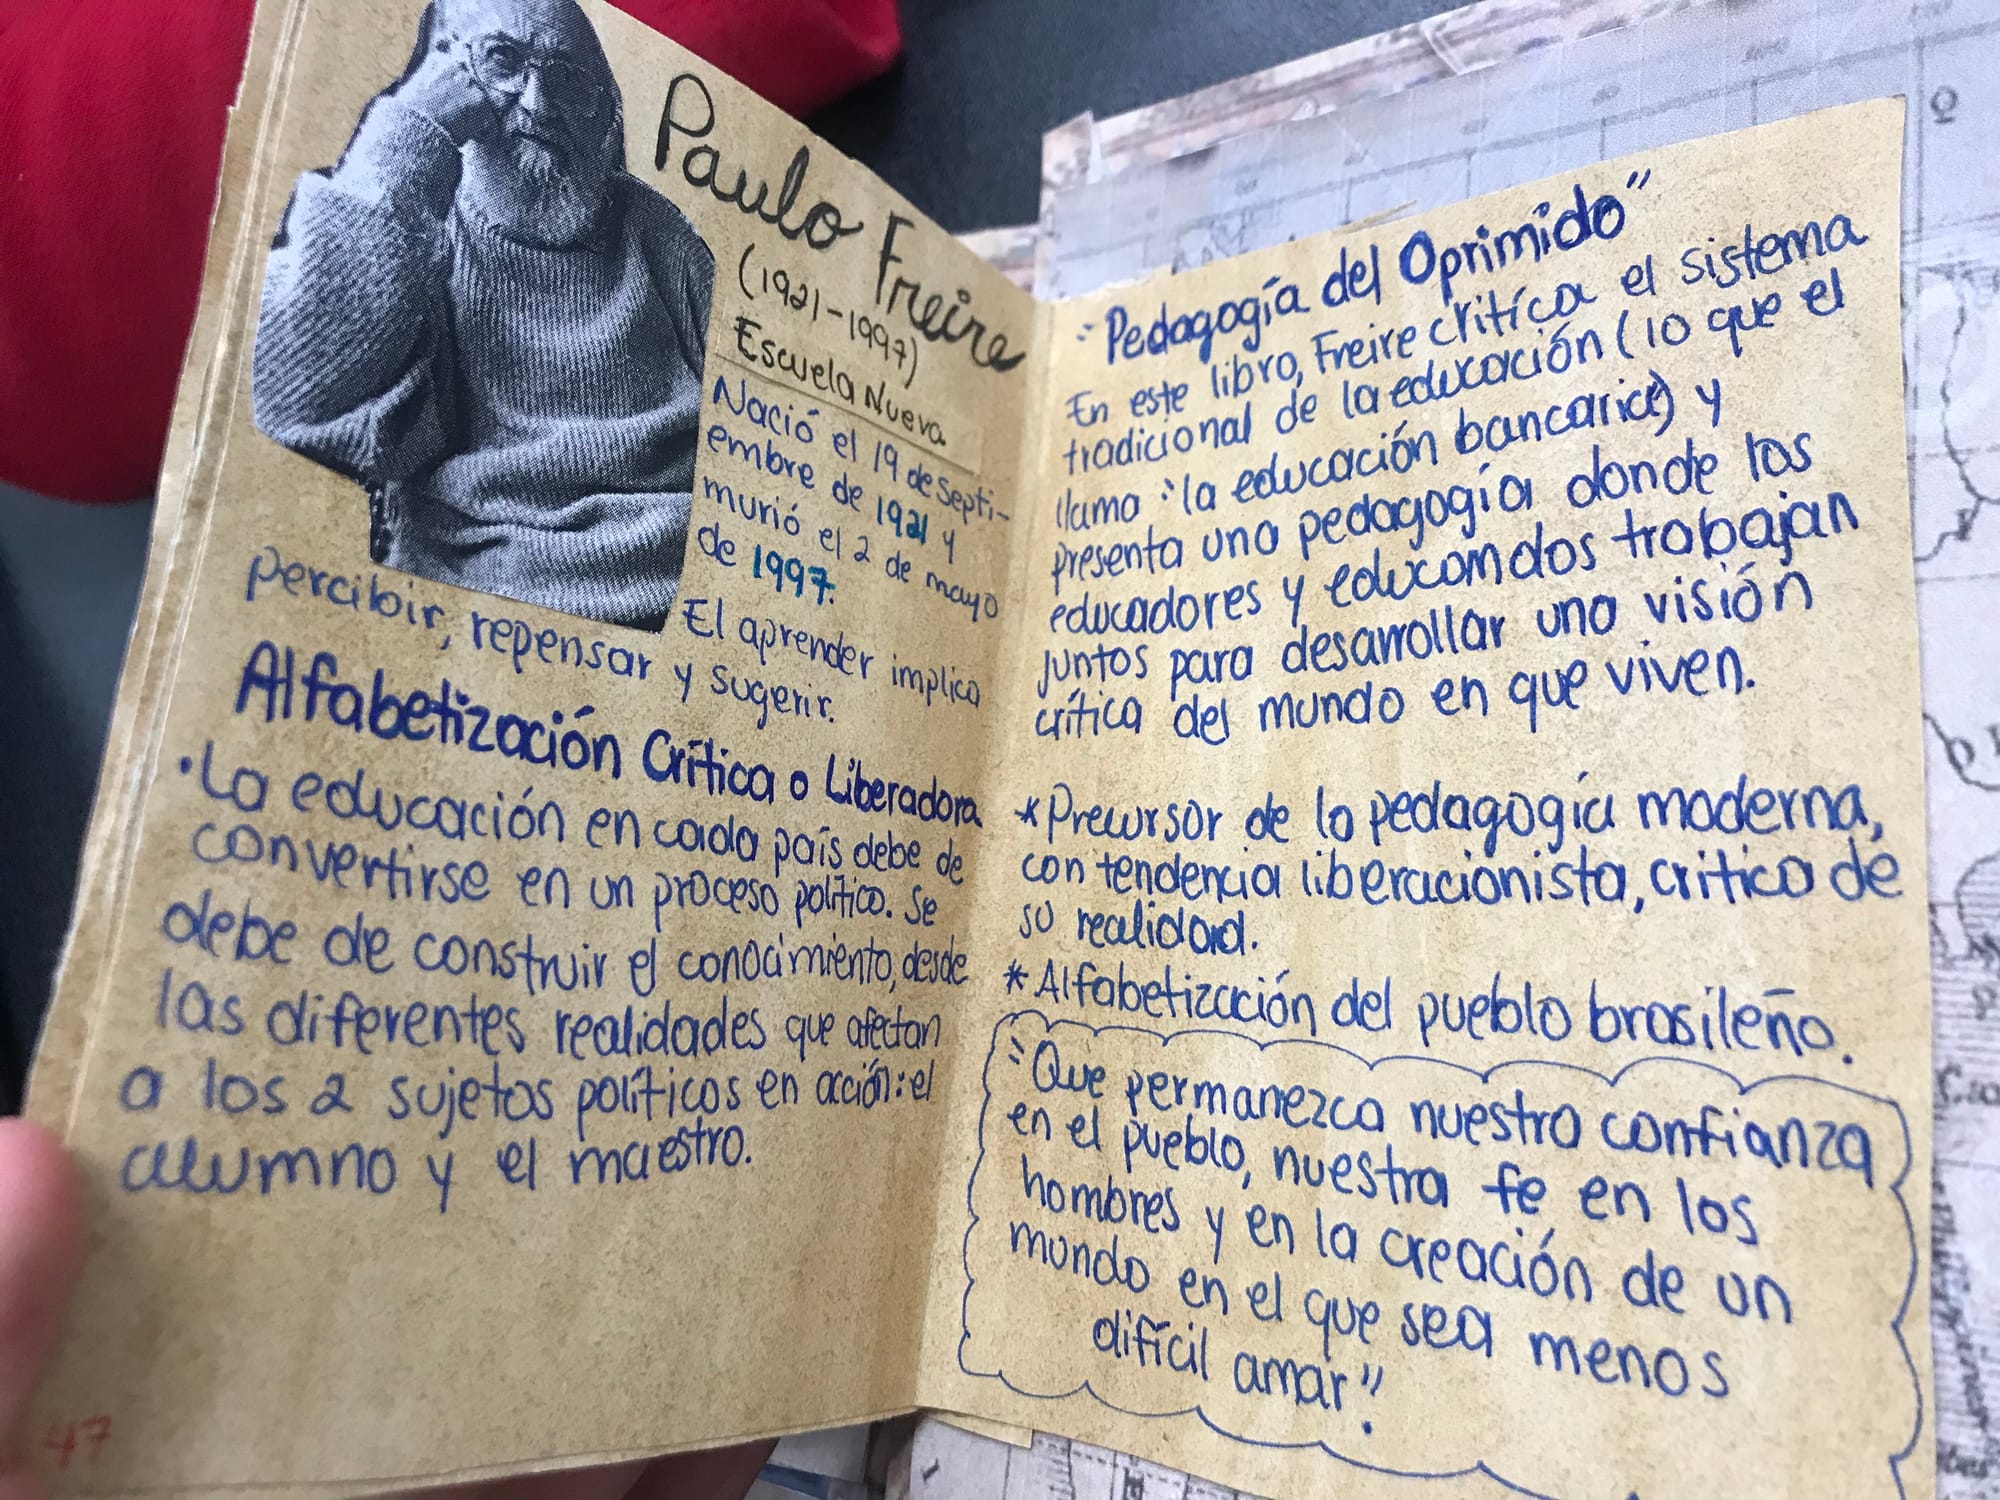 Paulo Freire
(1921-1997)
Escuela Nueva
Nació el 19 de Septi-
embre de 1921 y
murió el 2 de mayo
de 1997.
El aprender implica
percibir, repensar y sugerir.
Alfabetización Crítica o Liberadora
• La educación en cada país debe de
convertirse en un proceso político. Se
debe de construir el conocimiento, desde
las diferentes realidades que afectan
a los 2 sujetos políticos en acción: el
alumno y el maestro.
47
"Pedagogía del Oprimido"
En este libro, Freire crítica el sistema
tradicional de la educación (lo que el
llama "la educación bancaria) y
presenta una pedagogía donde los
educadores y educandos trabajan
juntos para desarrollar una visión
crítica del mundo en que viven.
*Precursor de la pedagogía moderna,
con tendencia liberacionista, critica de
su realidad.
*Alfabetización del pueblo brasileño.
"Que permanezca nuestra confianza
en el pueblo, nuestra fe en los
hombres y en la creación de un
mundo en el que sea menos
difícil amar".